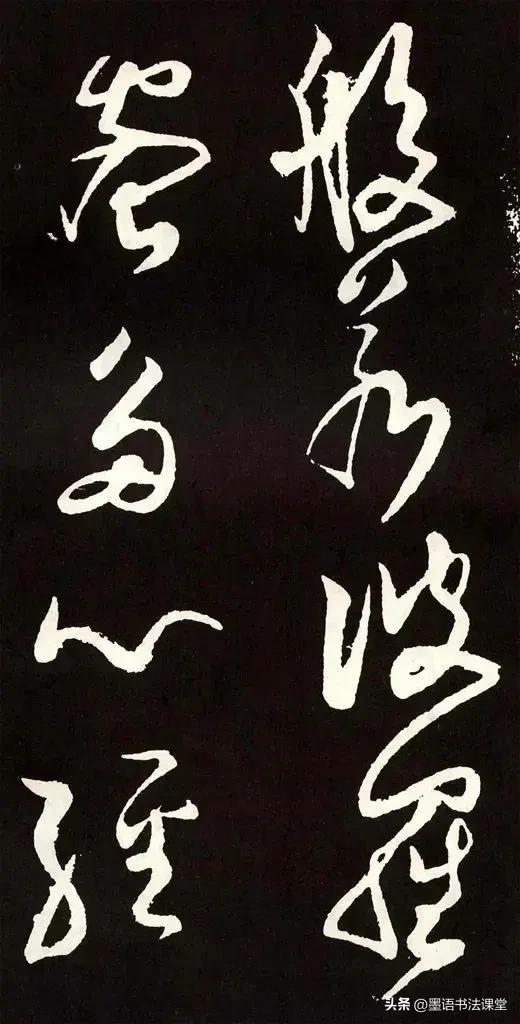 般若波羅
蜜多心經
头条 @墨语书法课堂